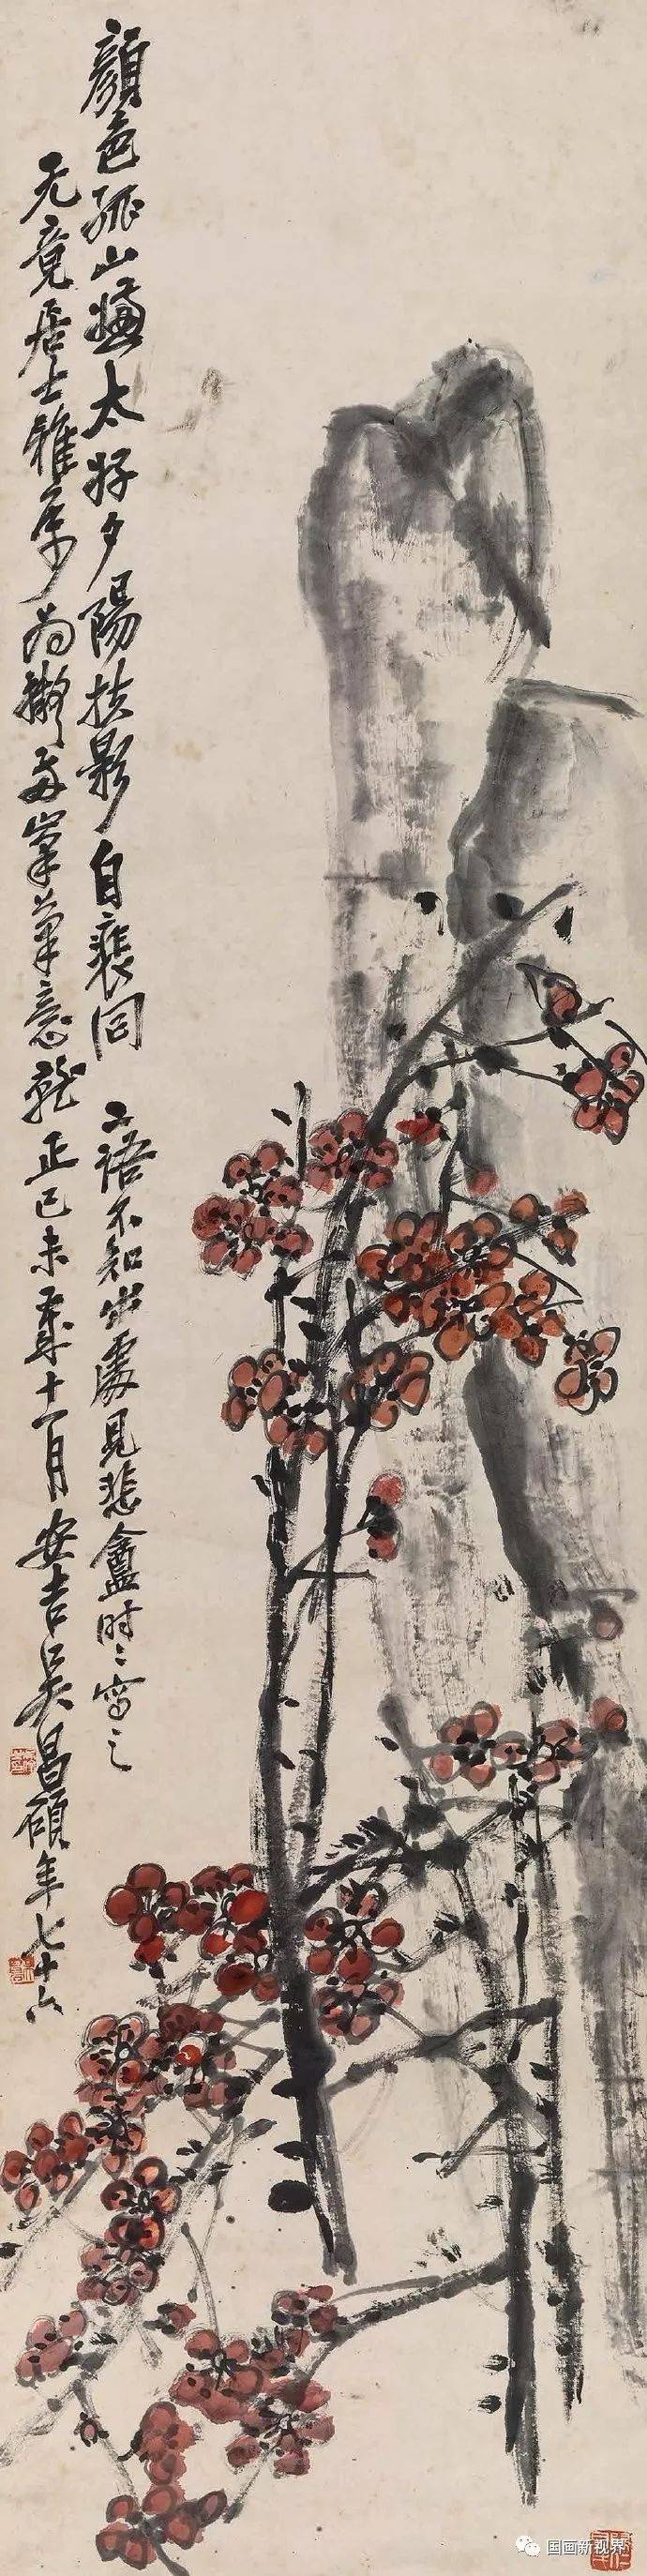 顏色孤山嫌太好夕陽扶影自裴回
二語不知出處見悲盦時時寫之
无竟居士雅屬為擬兩峯筆意就
正己未歲十一月安吉吳昌碩年七十六
国画新视界